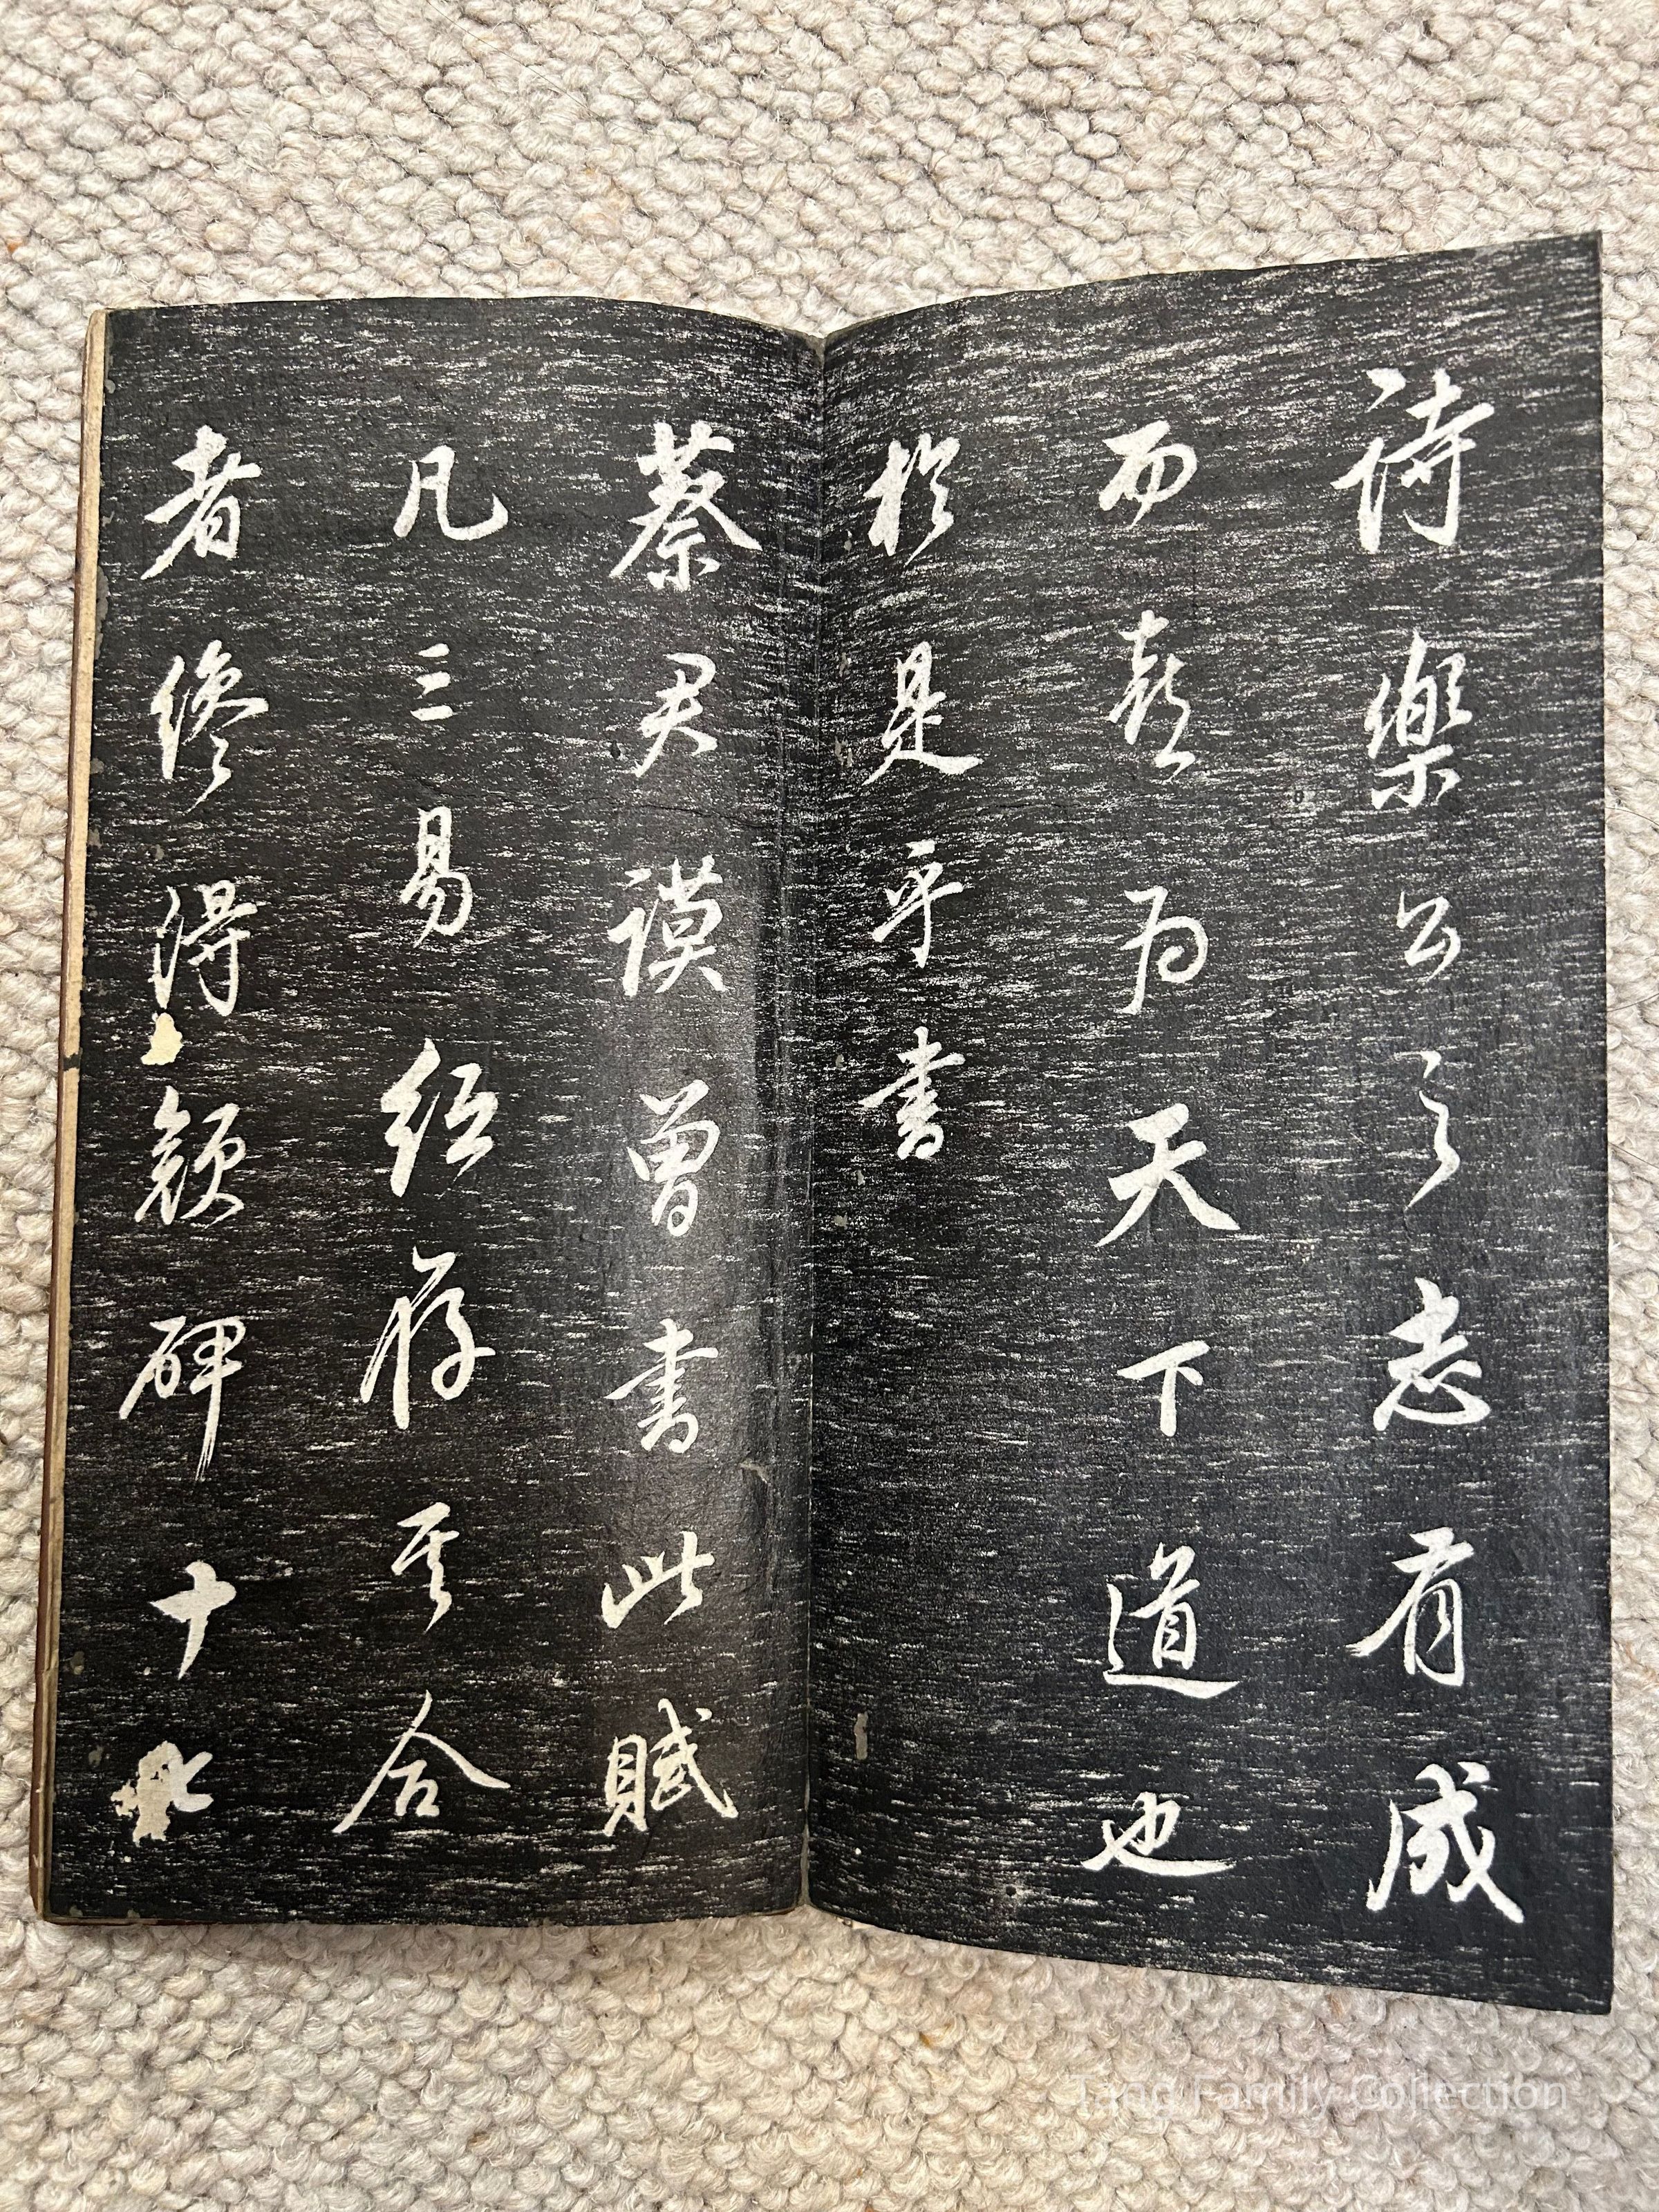 詩樂公之志有成
而喜為天下道也
於是乎書
蔡君謨曾書此賦
凡三易紙存其合
者得顏碑十
Tang Family Collection